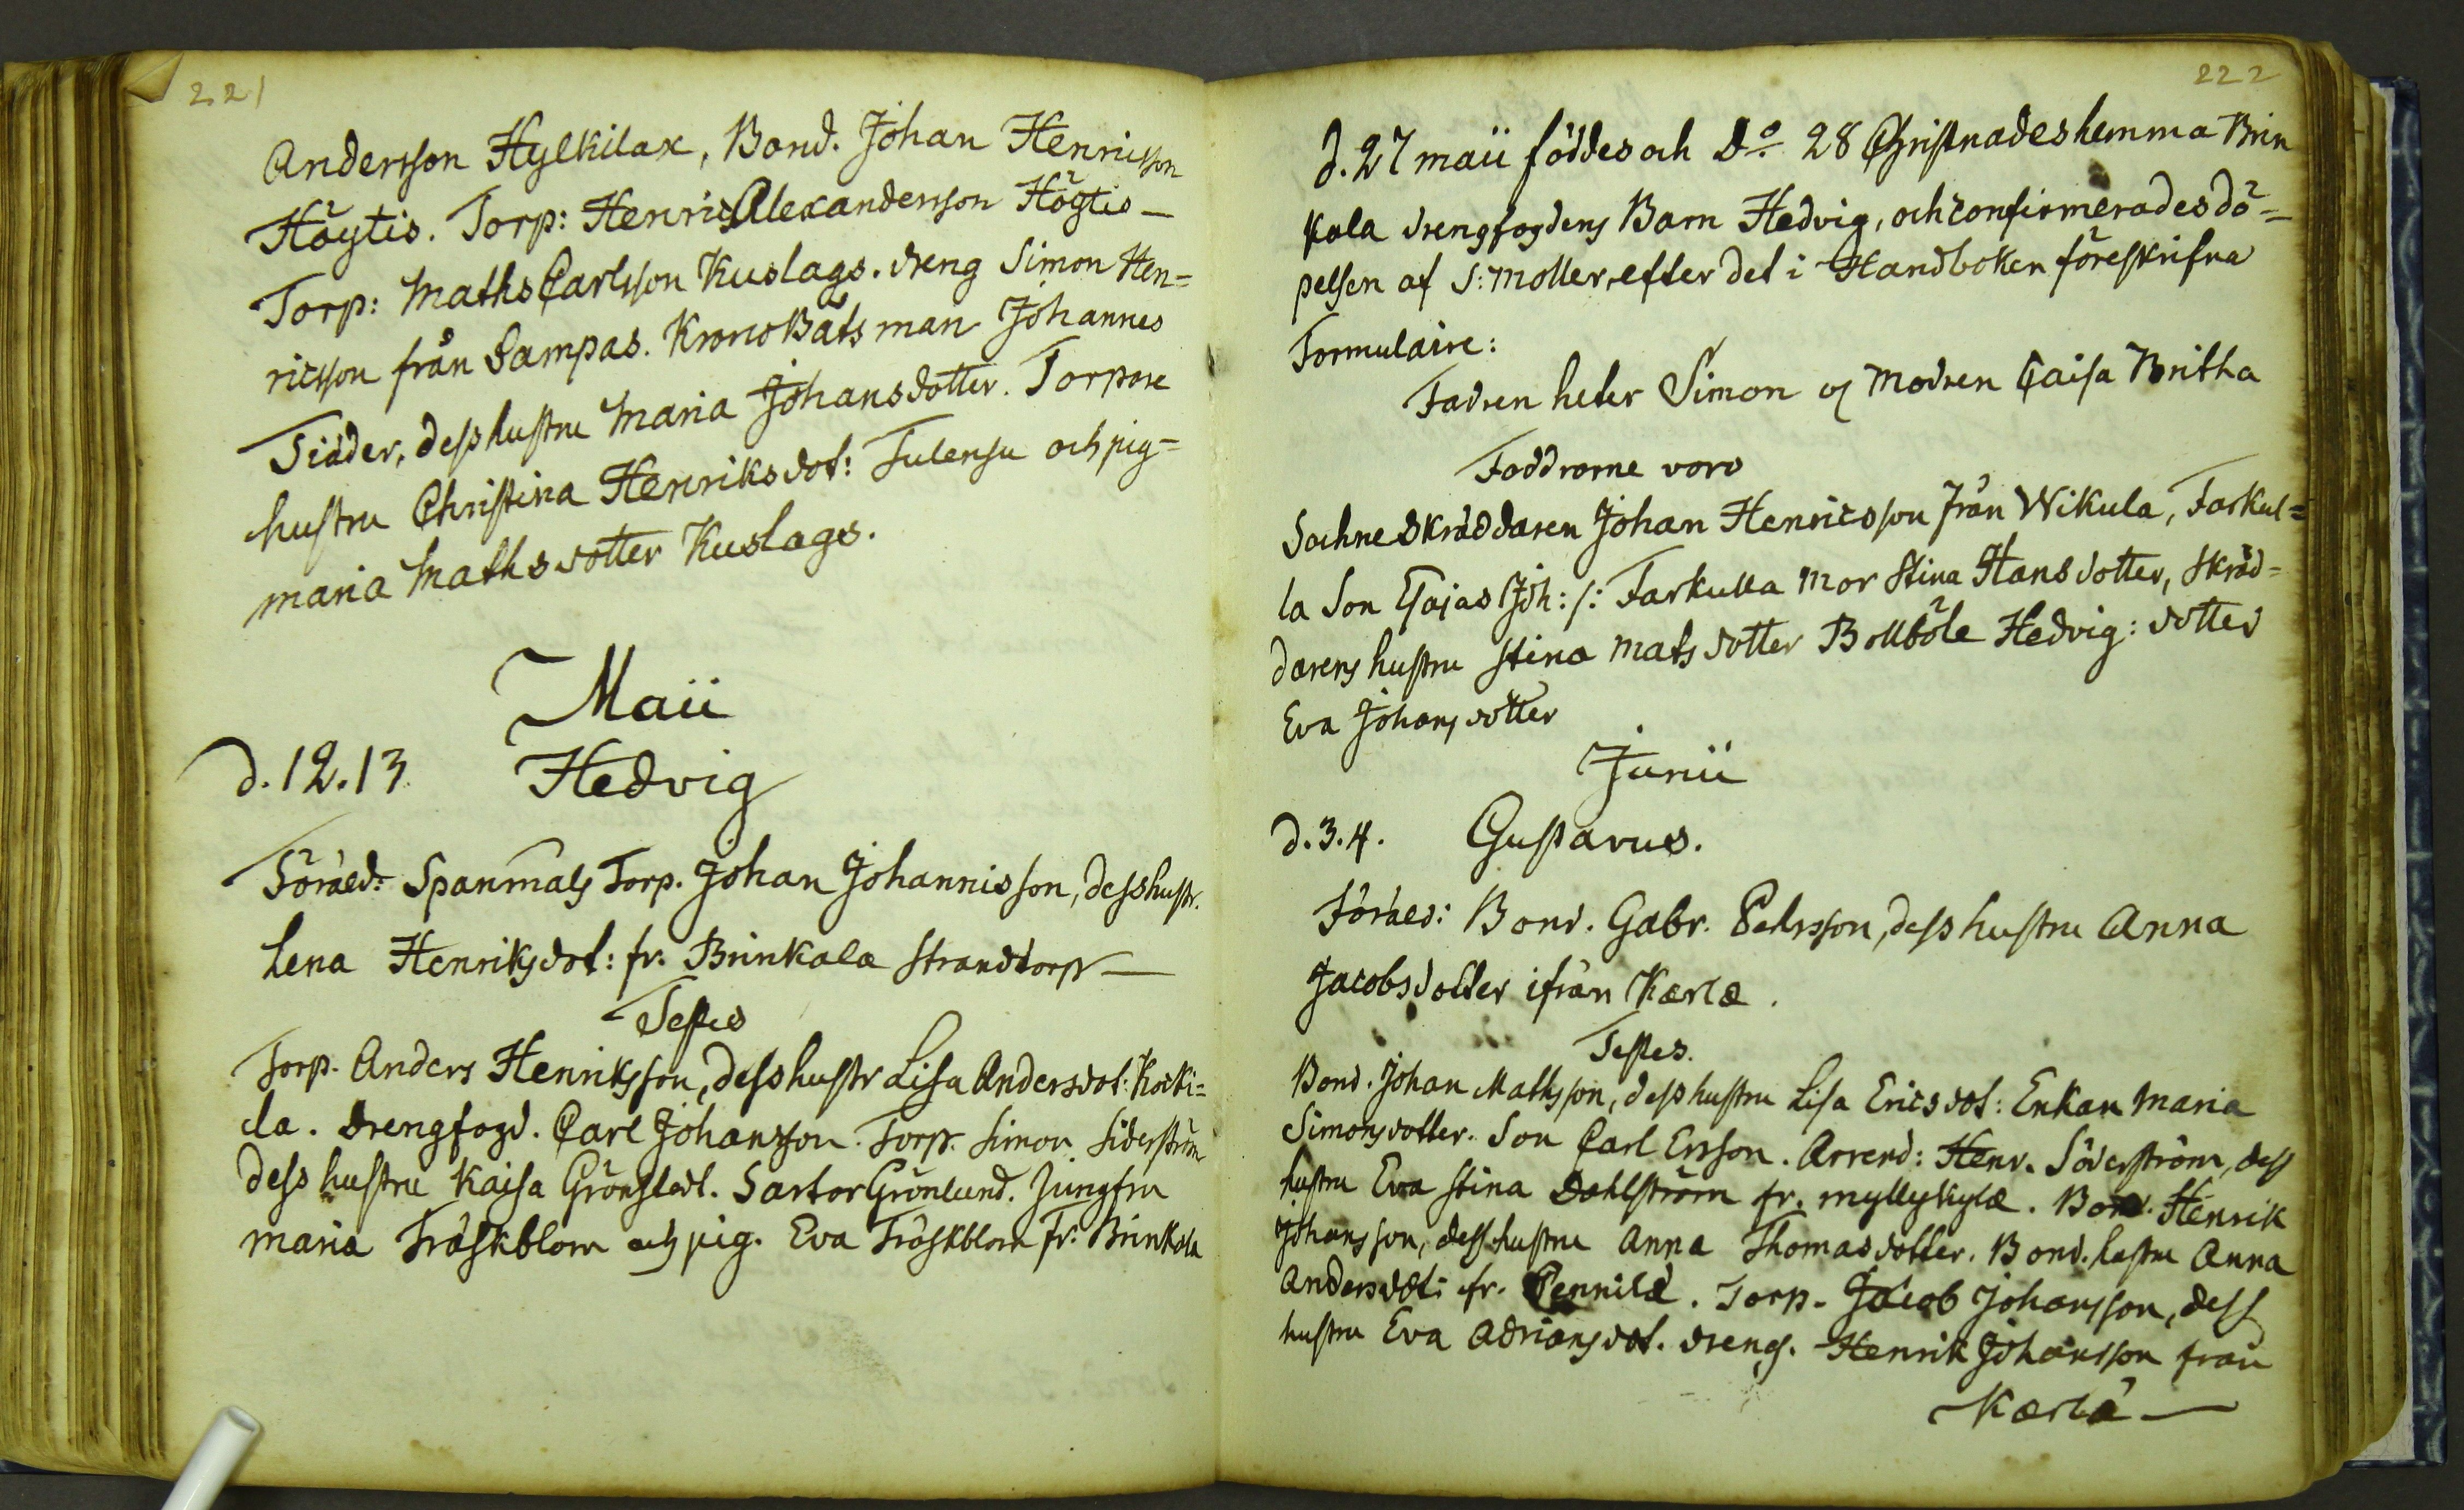 221
Andersson Hylkilax, Bond. Johan Henricsson
Höytis. Torp: Henric Alexandersson Höytis —
Torp: Maths Carlsson Kuslags. dreng Simon Hen=
ricsson från Sampas. Krono Båtsman Johannes
Tidder, dess hustru Maria Johansdotter. Torpare
hustru Christina Henriksdot: Tulensu och pig=
maria Mathsdotter Kuslags.
Maii
d. 12. 13. Hedvig
Föräld: Spanmals Torp. Johan Johannisson, dess hustr.
Lena Henriksdot: fr. Brinkala Strandtorp —
Testes
Torp. Anders Henriksson, dess hustr Lisa Andersdot: Kocki=
la. drengfogd. Carl Johansson. Torp. Simon Siderström
dess hustru Kaisa Grönstedt. Sartor Grönlund. Jungfru
maria Träskblom och pig. Eva Träskblom fr: Brinkala
222
d. 27 maii föddes och Do 28 Christnades hemma Brin
kala drengfogdens Barn Hedvig, och confirmerades dö=
pelsen af S: Moller, efter det i Handboken föreskrifna
Formulaire:
Fadren heter Simon och Modren Caisa Britha
Faddrarne voro
Sochne Skräddaren Johan Henricsson från Wikula, Farkul=
la Son Esajas Joh: /: Farkulla Mor Stina Hansdotter, Skräd=
darens hustru Stina Matsdotter Bollböle Hedvig: dotter
Eva Johansdotter
Junii
d. 3. 4. Gustavus.
Föräld: Bond. Gabr. Pehrsson, dess hustru Anna
Jacobsdotter ifrån Kærlæ.
Testes.
Bond. Johan Mathsson, dess hustru Lisa Ericsdot: Enkan Maria
Simonsdotter. Son Carl Ersson. Arrend: Henr. Söderström, dess
hustru Eva Stina Dahlström fr. myllykylæ. Bond. Henrik
Johansson, dess hustru Anna Thomasdotter. Bond. hustru Anna
Andersdot: fr. Pennilä. Torp. Jacob Johansson, dess
hustru Eva Adriansdot. dreng. Henrik Johansson från
Kærlä —